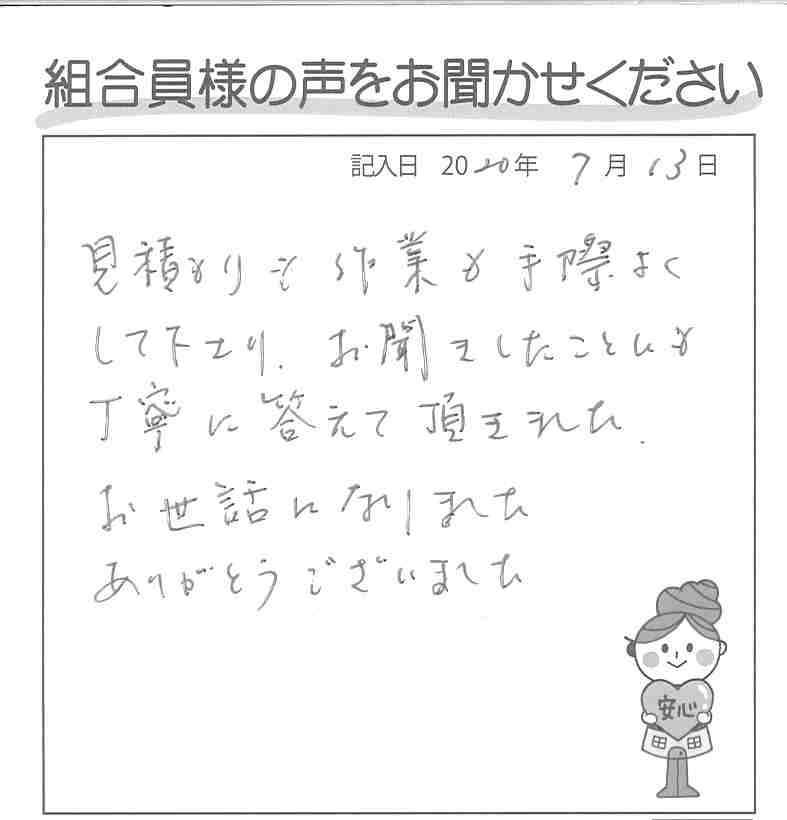 組合員様の声をお聞かせください
記入日 2020年 7月 13日
見積もりも 作業も 手際よく
して下さり、お聞きしたことにも
丁寧に答えて頂きました。
お世話になりました
ありがとうございました
安心